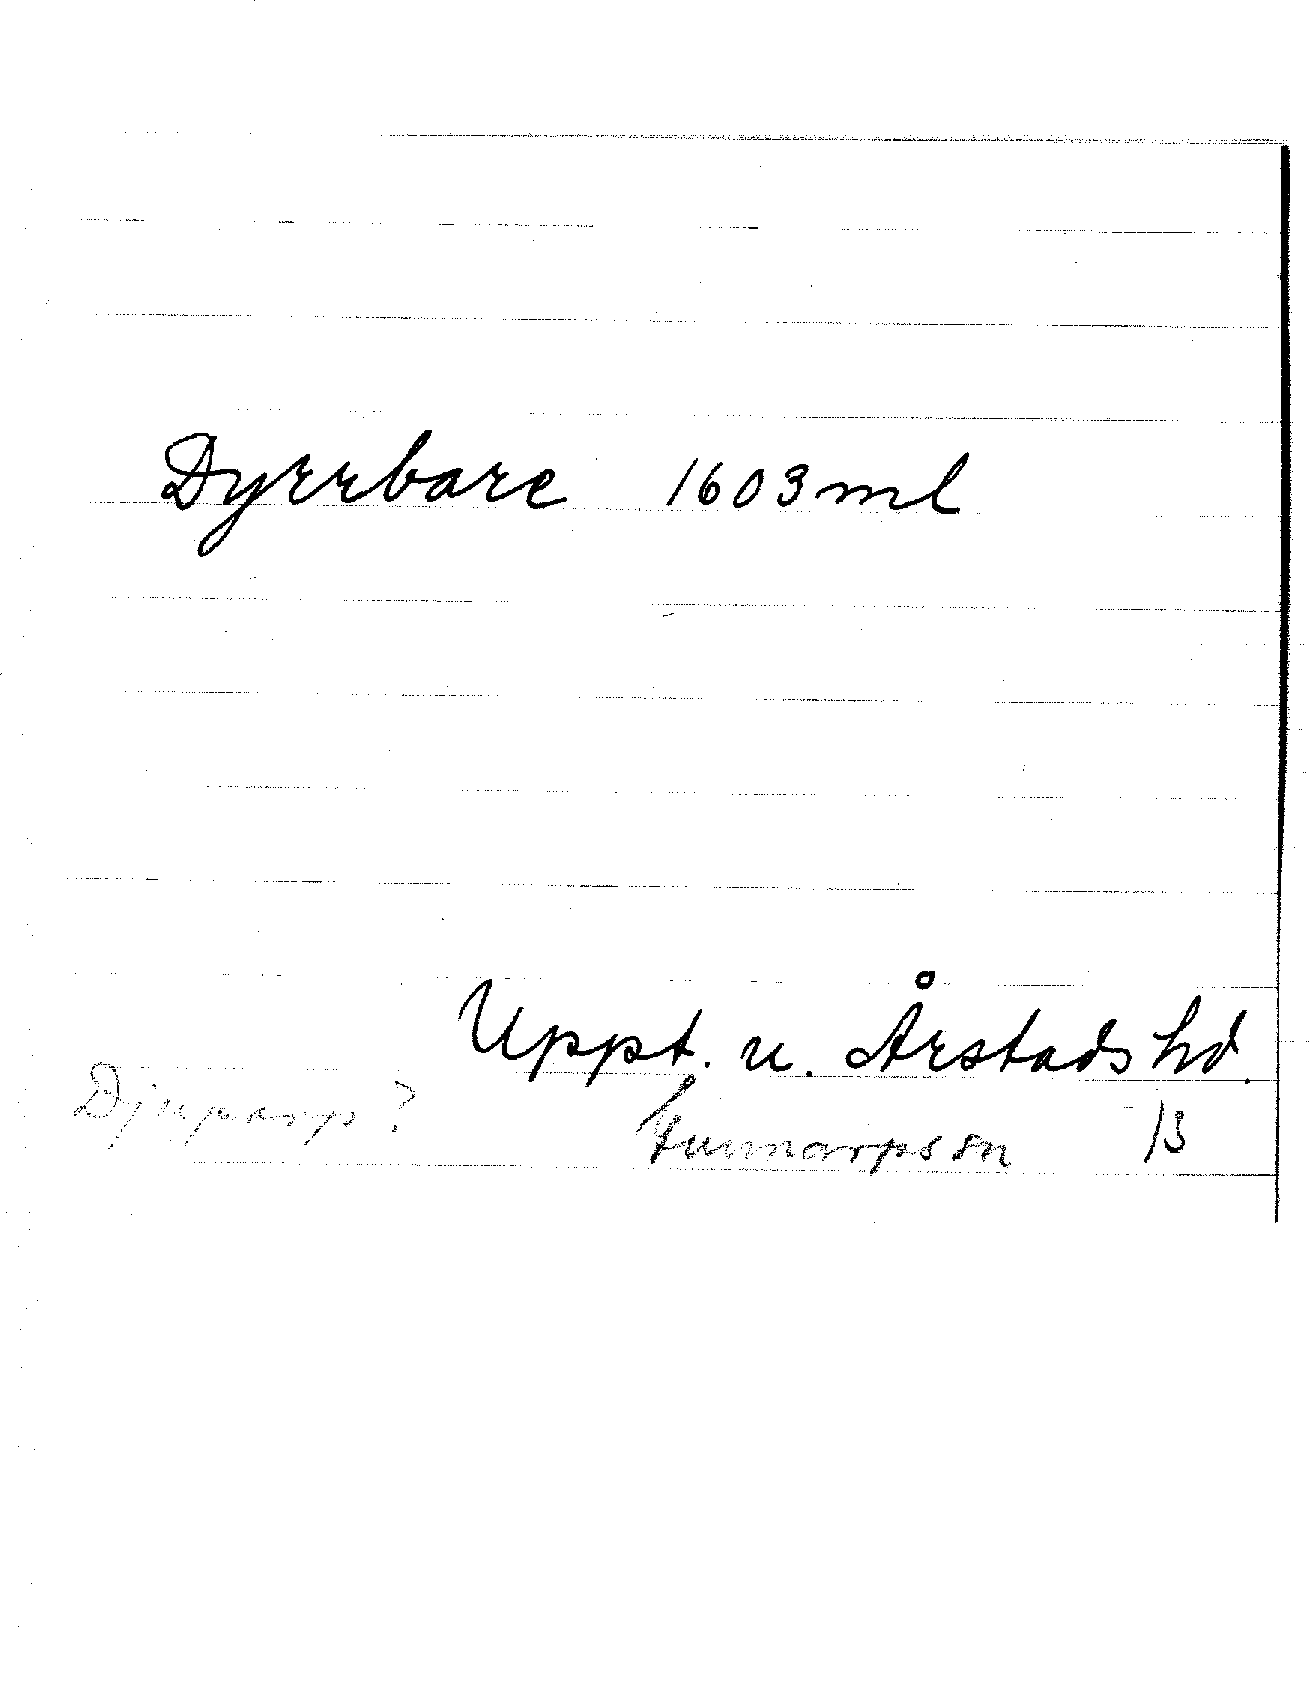 Dyrrbare 1603 ml
Uppt. u. Årstads hd.
Gunnarps sn 13